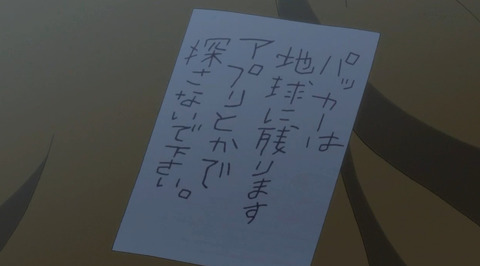 パッカーは
地球に残ります
アプリとかで
探さないで下さい。